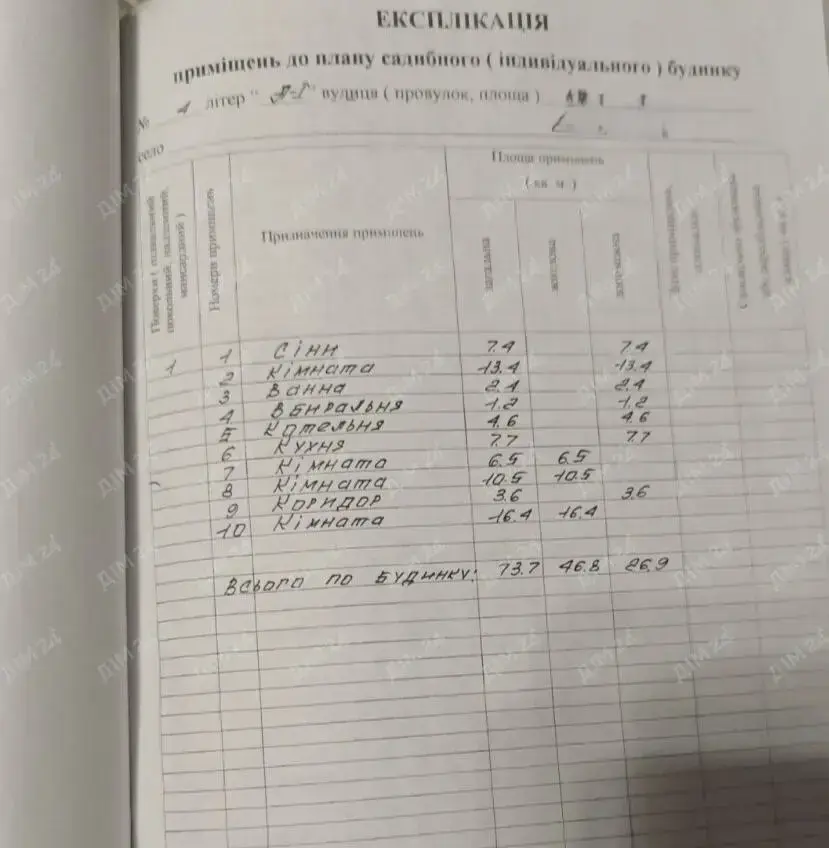 ЕКСПЛІКАЦІЯ
приміщень до плану садибного ( індивідуального ) будинку
№ 1 літер " А-І " вулиця ( провулок, площа )
село
Поверхи ( підвальний, цокольний, надземний, мансардний )
Номери приміщень
Призначення приміщень
Площа приміщень
( кв. м. )
загальна
житлова
допоміжна
1 1 Сіни 7.4 7.4
2 Кімната 13.4 13.4
3 Ванна 2.4 2.4
4 Вбиральня 1.2 1.2
5 Котельня 4.6 4.6
6 Кухня 7.7 7.7
7 Кімната 6.5 6.5
8 Кімната 10.5 10.5
9 Коридор 3.6 3.6
10 Кімната 16.4 16.4
Всього по будинку: 73.7 46.8 26.9
ДІМ 24